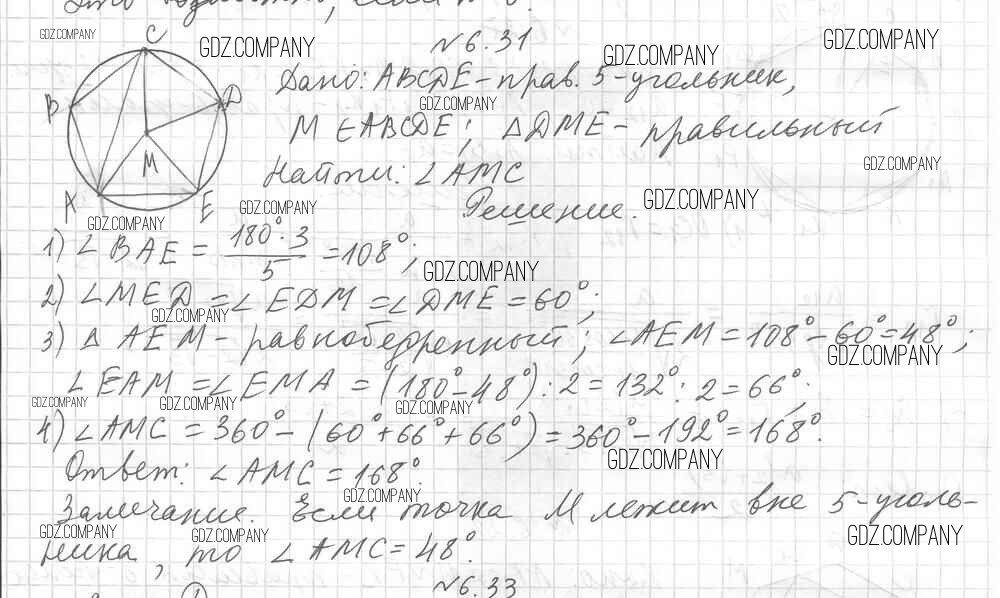 GDZ.COMPANY
GDZ.COMPANY
GDZ.COMPANY
GDZ.COMPANY
C
B
D
M
A
E
№6.31
Дано: ABCDE – прав. 5-угольник,
GDZ.COMPANY
M ∈ ABCDE; △DME – правильный
GDZ.COMPANY
Найти: ∠AMC
GDZ.COMPANY
GDZ.COMPANY
GDZ.COMPANY
Решение.
1) ∠BAE = 180°·3/5 = 108°;
GDZ.COMPANY
2) ∠MED = ∠EDM = ∠DME = 60°;
GDZ.COMPANY
3) △AEM – равнобедренный; ∠AEM = 108° – 60° = 48°;
GDZ.COMPANY
∠EAM = ∠EMA = (180° – 48°) : 2 = 132° : 2 = 66°;
GDZ.COMPANY
GDZ.COMPANY
GDZ.COMPANY
4) ∠AMC = 360° – (60° + 66° + 66°) = 360° – 192° = 168°.
GDZ.COMPANY
Ответ: ∠AMC = 168°.
GDZ.COMPANY
Замечание. Если точка M лежит вне 5-уголь-
GDZ.COMPANY
GDZ.COMPANY
GDZ.COMPANY
ника, то ∠AMC = 48°.
№6.33